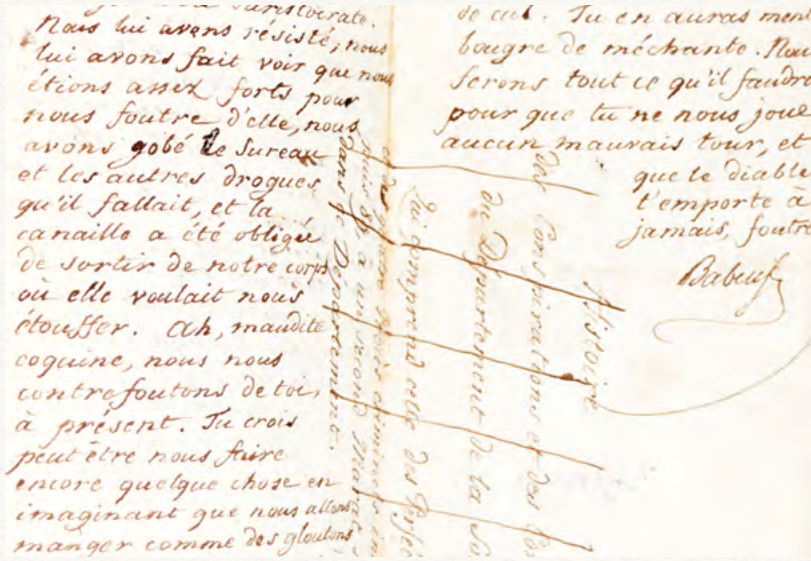 aristocrate.
Nous lui avons résisté, nous
lui avons fait voir que nous
étions assez forts pour
nous foutre d'elle, nous
avons gobé le Sureau
et les autres drogues
qu'il fallait, et la
canaille a été obligée
de sortir de notre corps
où elle voulait nous
étouffer. Ah, maudite
coquine, nous nous
contrefoutons de toi,
à présent. Tu crois
peut être nous faire
encore quelque chose en
imaginant que nous allons
manger comme des gloutons
de cul. Tu en auras men
bougre de méchante. Nou
ferons tout ce qu'il faudra
pour que tu ne nous joue
aucun mauvais tour, et
que le diable
t'emporte à
jamais, foutre
Babeuf
Histoire
des Conspirations et des Con
du Département de la So
qui comprend celle des
à un second Marat
dans ce Département.